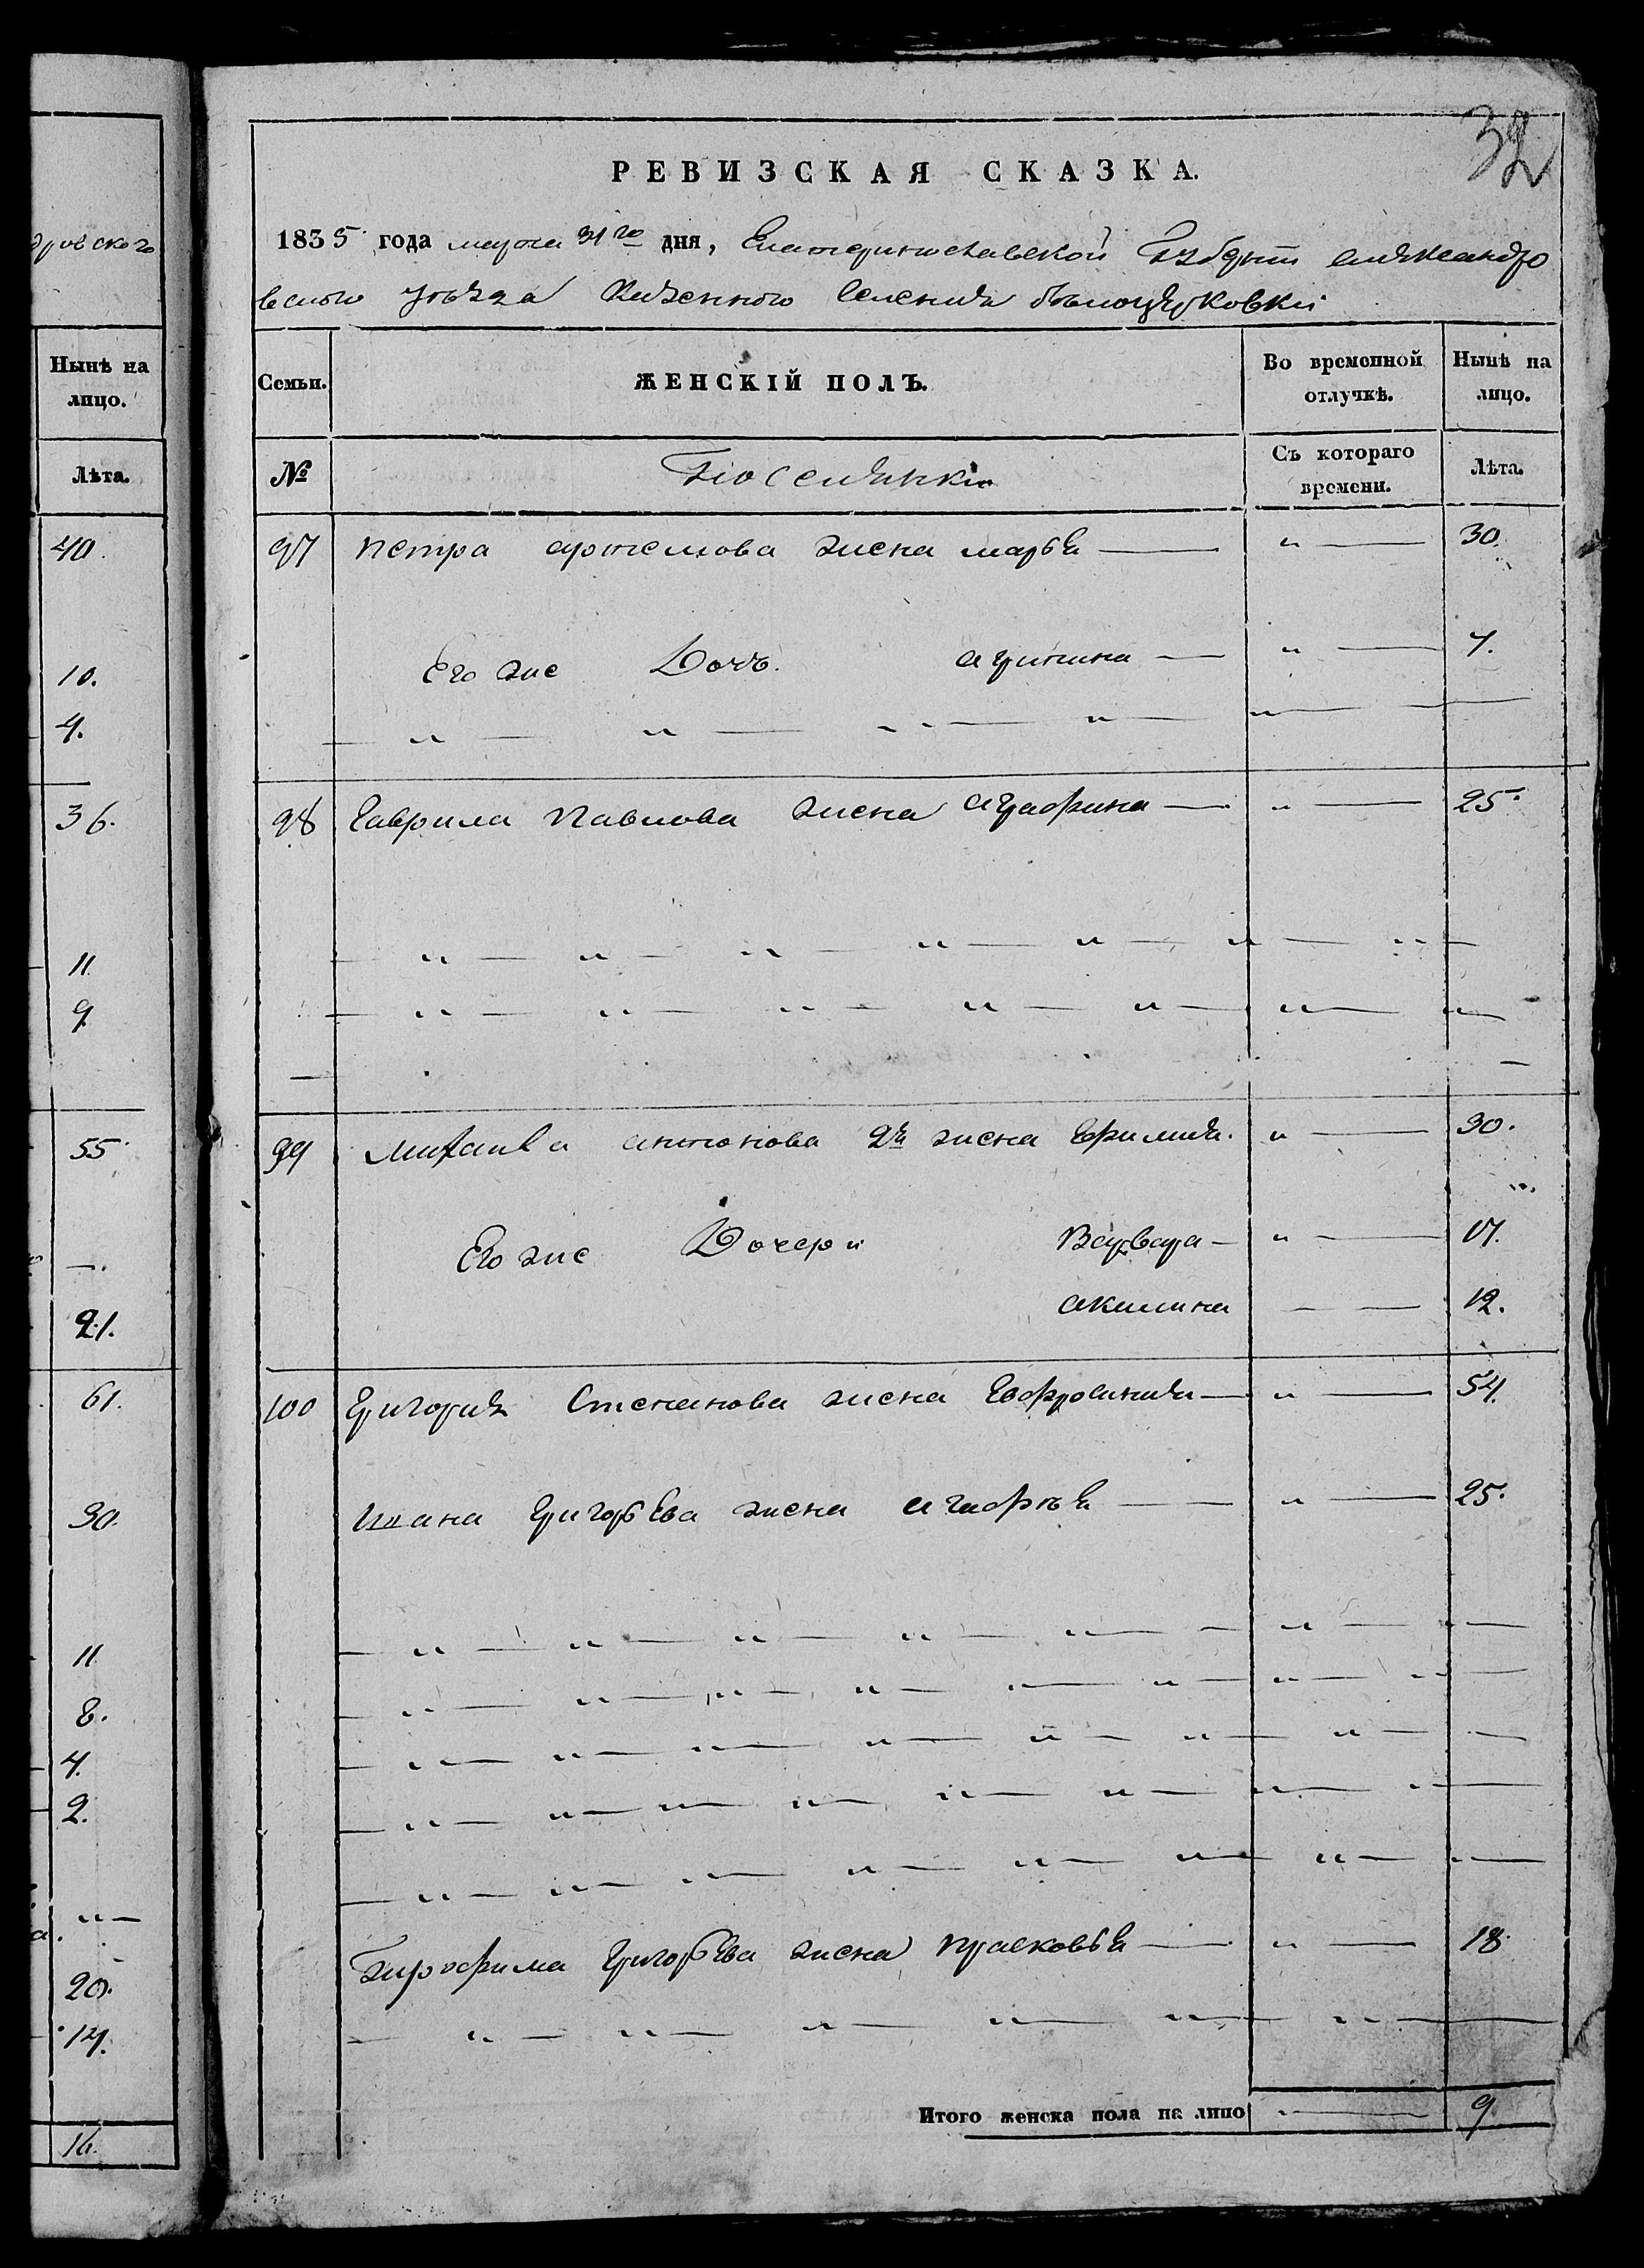 дровскаго
Нынѣ на
лицо.
Лѣта.
40.
10.
4.
36.
11.
9.
55.
21.
61.
30.
11
8.
4.
2.
20.
14.
16.
32
РЕВИЗСКАЯ СКАЗКА.
1835 года марта 31го дня, Екатеринославской Губерніи александро
вскаго уѣзда Казенного Селенія бѣлоцерковки
Семьи.
ЖЕНСКІЙ ПОЛЪ.
Во временной
отлучкѣ.
Нынѣ на
лицо.
№
Поселянки
Съ котораго
времени.
Лѣта.
97 петра артемова жена марья — „ — 30.
Его же Дочь. агрипина — „ — 7.
98 Гаврила павлова жена аграфина — „ — 25.
99 михаила антонова 2я жена Ефимия. „ — 30.
Его же Дочери Варвара — „ — 17.
акилина — — 12.
100 Григория Степанова жена Евфросиния — „ — 54.
Ивана Григорьева жена агафья — „ — 25.
Трофима Григорьева жена прасковья — „ — 18.
Итого женска пола на лицо — 9